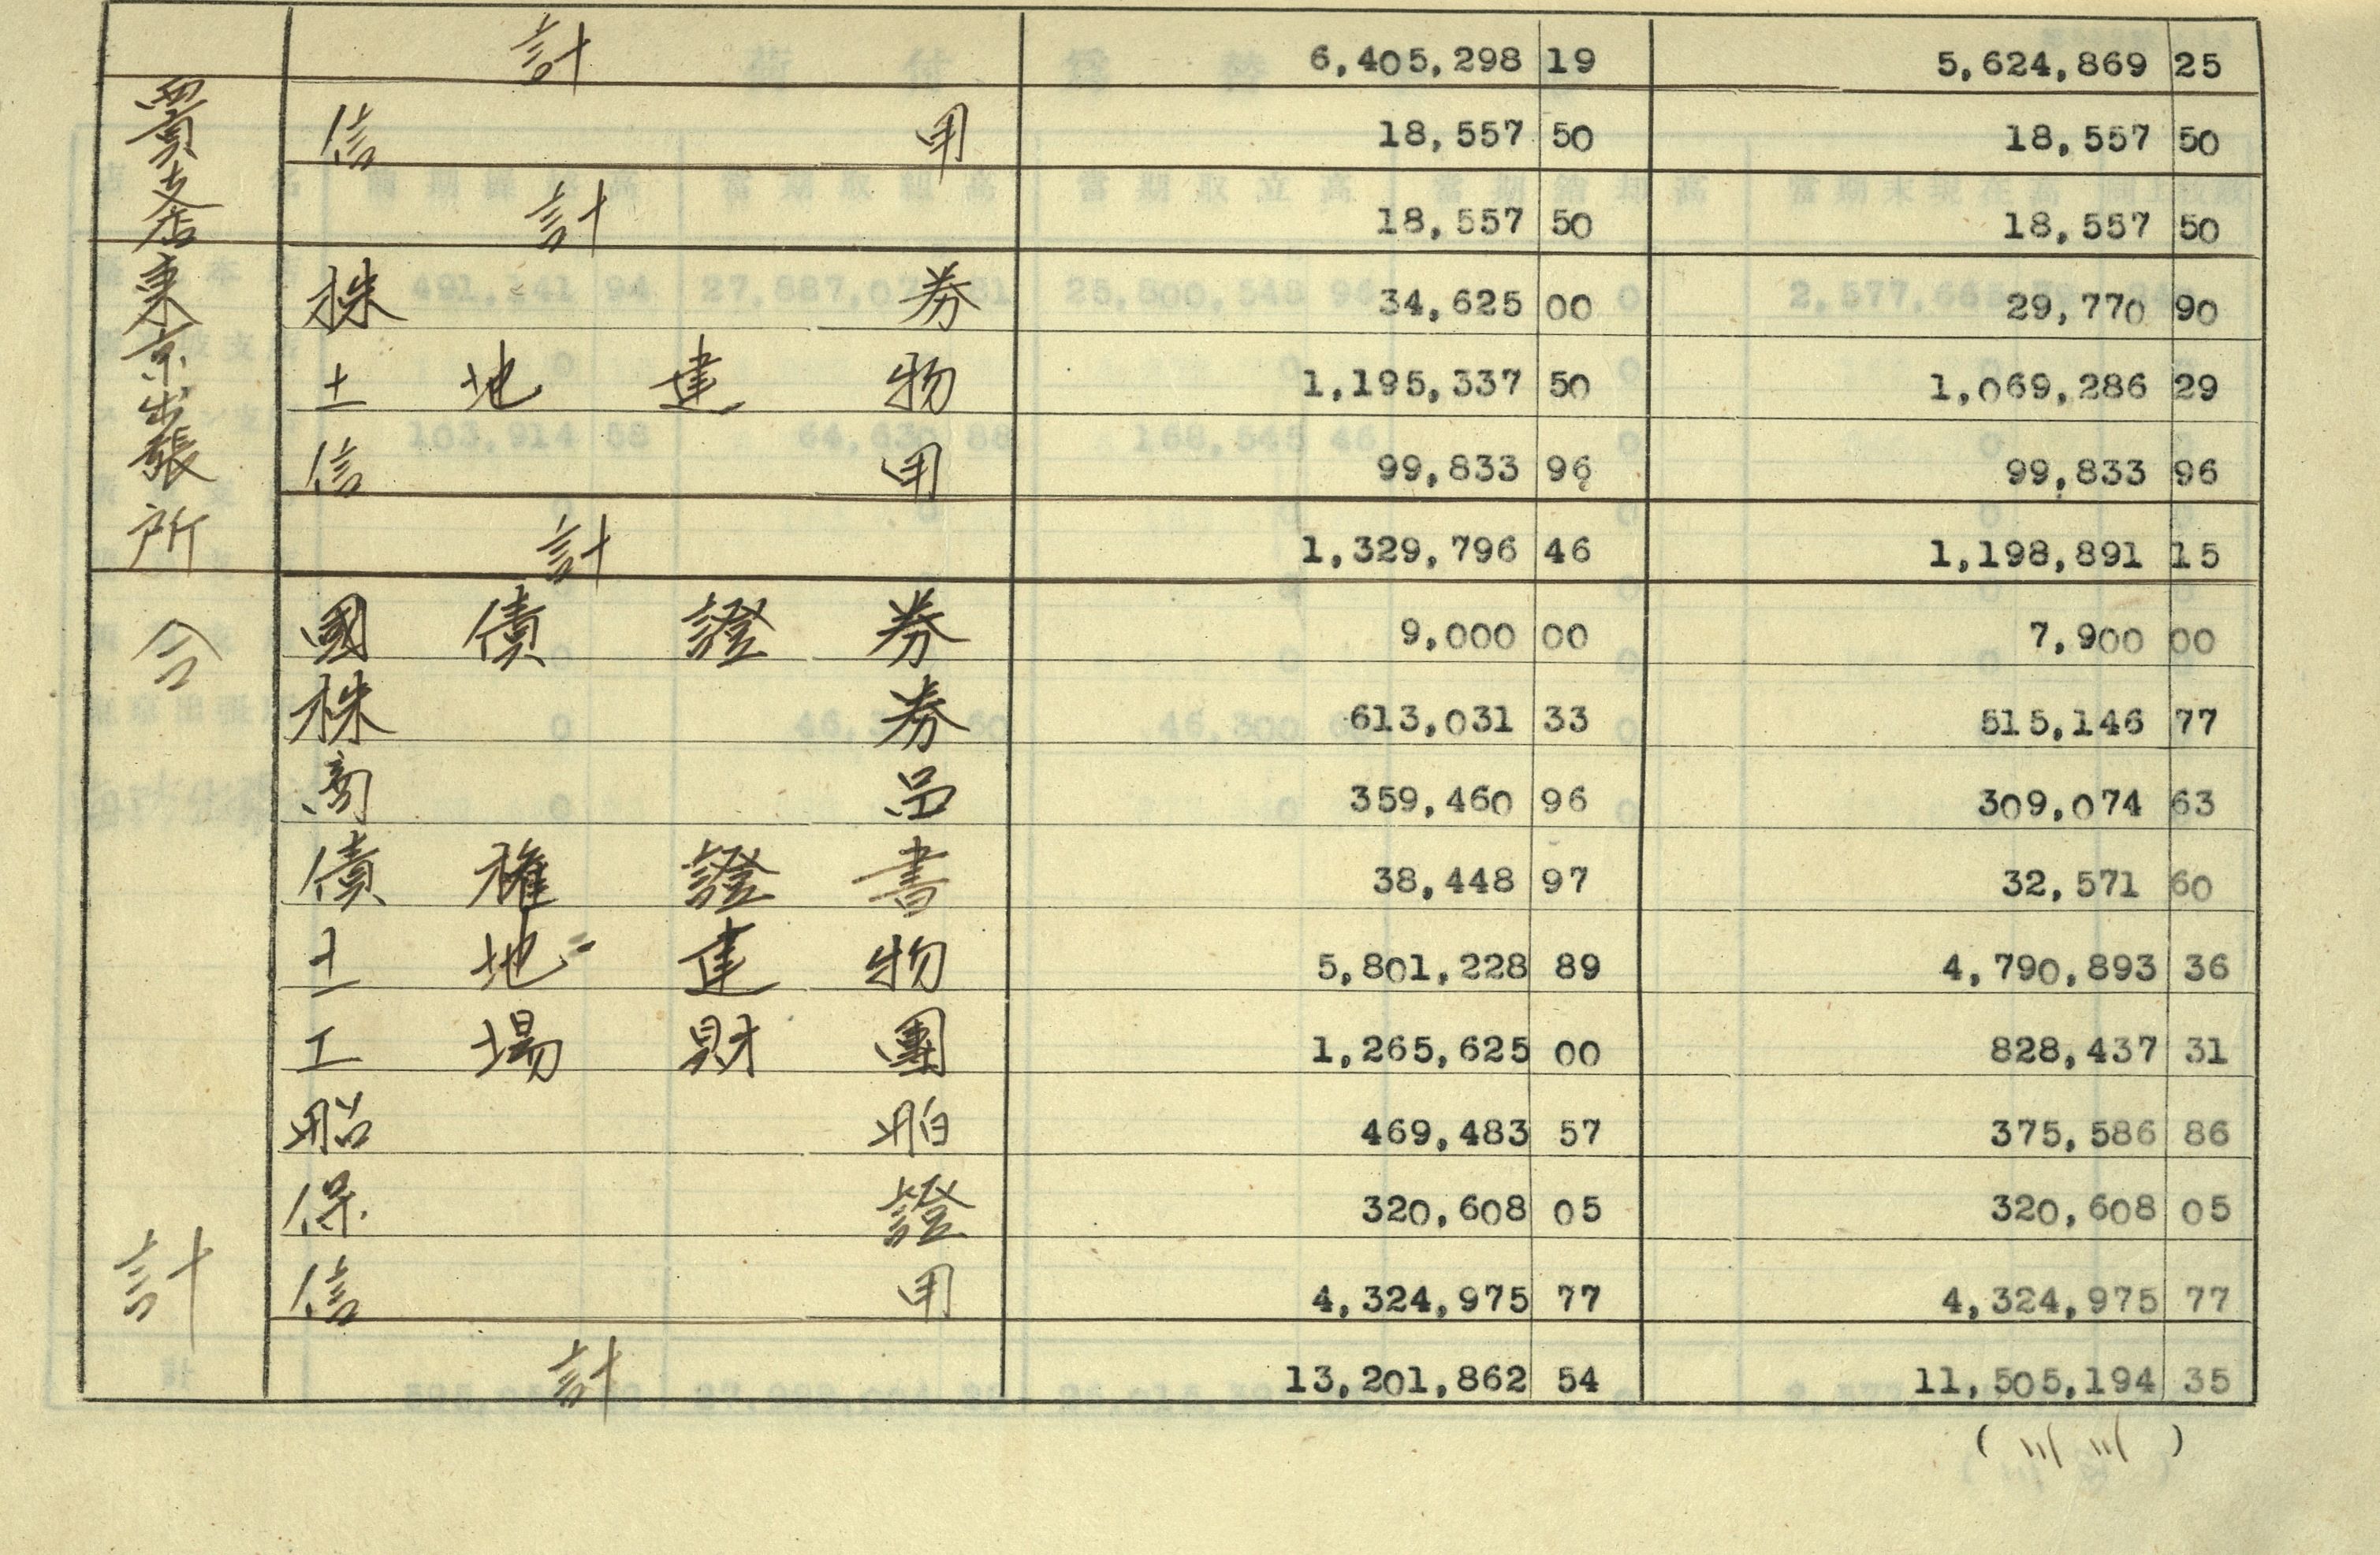 計 6,405,298 19 5,624,869 25
西貢支店 信用 18,557 50 18,557 50
計 18,557 50 18,557 50
東京出張所 株券 34,625 00 29,770 90
土地建物 1,195,337 50 1,069,286 29
信用 99,833 96 99,833 96
計 1,329,796 46 1,198,891 15
合計 國債證券 9,000 00 7,900 00
株券 613,031 33 515,146 77
商品 359,460 96 309,074 63
債権證書 38,448 97 32,571 60
土地建物 5,801,228 89 4,790,893 36
工場財團 1,265,625 00 828,437 31
船舶 469,483 57 375,586 86
保證 320,608 05 320,608 05
信用 4,324,975 77 4,324,975 77
計 13,201,862 54 11,505,194 35